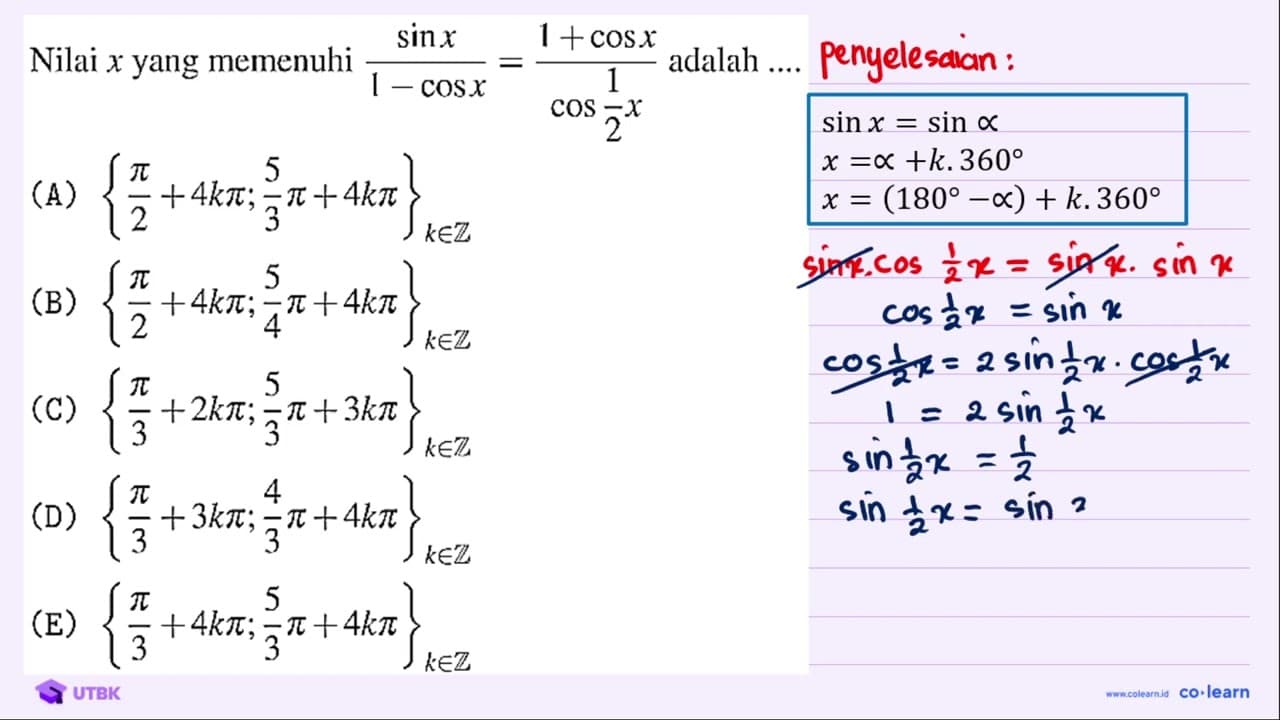 Nilai x yang memenuhi \frac{\sin x}{1 - \cos x} = \frac{1 + \cos x}{\cos \frac{1}{2}x} adalah ....
(A) \left\{ \frac{π}{2} + 4kπ; \frac{5}{3}π + 4kπ \right\}_{k∈ℤ}
(B) \left\{ \frac{π}{2} + 4kπ; \frac{5}{4}π + 4kπ \right\}_{k∈ℤ}
(C) \left\{ \frac{π}{3} + 2kπ; \frac{5}{3}π + 3kπ \right\}_{k∈ℤ}
(D) \left\{ \frac{π}{3} + 3kπ; \frac{4}{3}π + 4kπ \right\}_{k∈ℤ}
(E) \left\{ \frac{π}{3} + 4kπ; \frac{5}{3}π + 4kπ \right\}_{k∈ℤ}
UTBK
Penyelesaian :
sin x = sin ∝
x =∝ +k. 360°
x = (180° −∝) + k. 360°
sin x. cos \frac{1}{2} x = sin x. sin x
cos \frac{1}{2} x = sin x
cos \frac{1}{2} x = 2 sin \frac{1}{2} x . cos \frac{1}{2} x
1 = 2 sin \frac{1}{2} x
sin \frac{1}{2} x = \frac{1}{2}
sin \frac{1}{2} x = sin
www.colearn.id co·learn